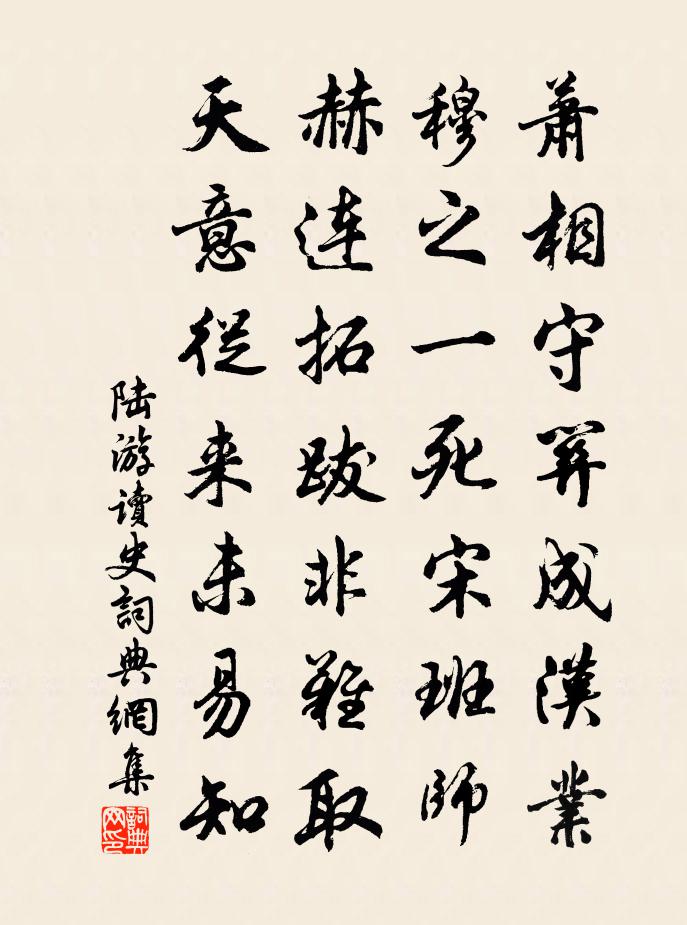 蕭相守關成漢業
穆之一死宋班師
赫連拓跋非難取
天意從来未易知
陸游讀史詞典網集
詞典網印